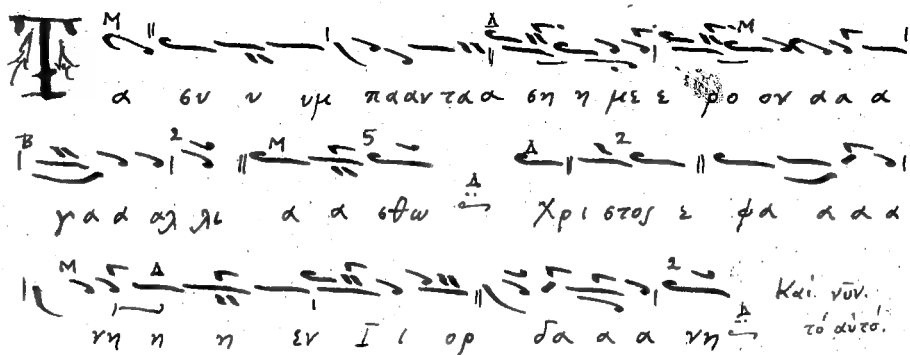 Τ α συ υ υμ πααν ταα ση η με ε ρο ον α α α
γα α αλ λι α α σθω Χρι στος ε φα α α α
νη η η εν Ι ι ορ δα α α α νη Καί νῦν.
τό αὐτό.